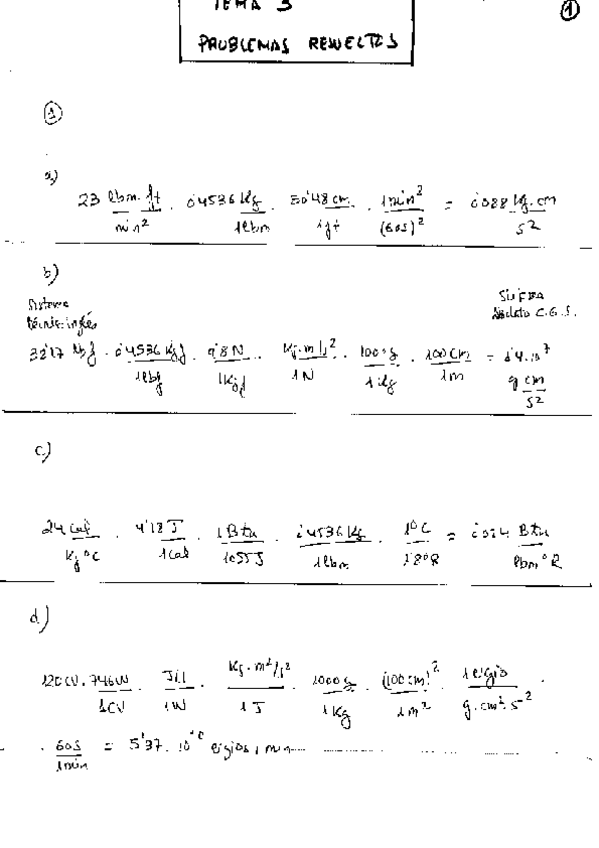 TEMA 3
①
PROBLEMAS RESUELTOS
①
a)
23 lbm·ft/min² · 0'4536 Kg/1lbm · 30'48 cm/1ft · 1min²/(60s)² = 0'088 Kg·cm/s²
b)
Sistema
técnico inglés
Absoluto C.G.S.
32'17 lbf · 0'4536 Kgf/1lbf · 9'8 N/1Kgf · Kg·m/s²/1N · 1000g/1kg · 100cm/1m = 1'4·10⁷ g cm/s²
c)
24 cal/Kg °C · 4'18 J/1cal · 1Btu/1055J · 0'4536 Kg/1lbm · 1°C/1'8°R = 0'024 Btu/lbm°R
d)
120CV · 746W/1CV · J/s/1W · Kg·m²/s²/1J · 1000g/1Kg · (100cm)²/1m² · 1ergio/g·cm²·s⁻² ·
· 60s/1min = 5'37·10 ergios/min